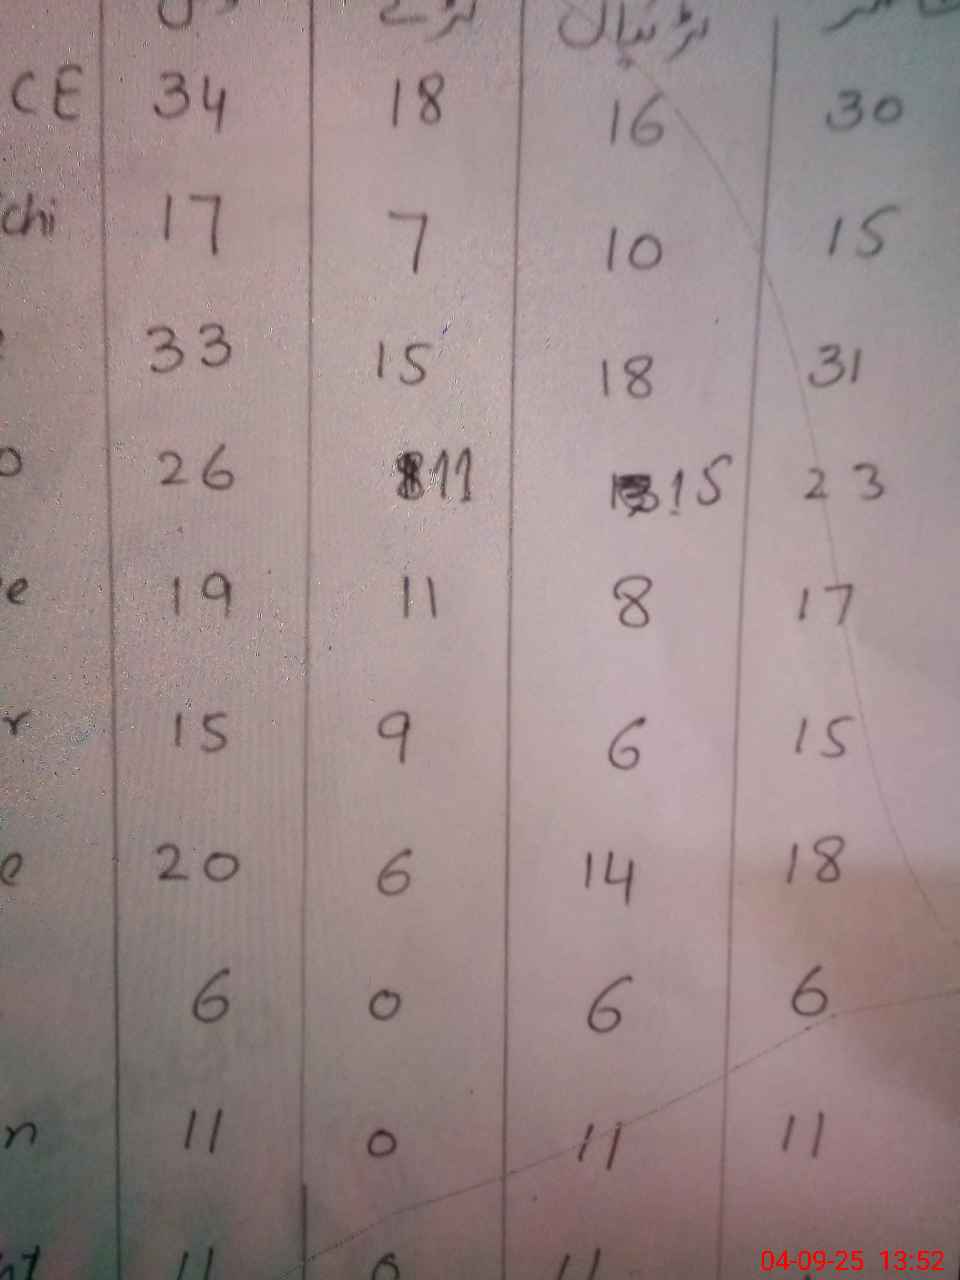 لڑکے لڑکیاں
CE 34 18 16 30
chi 17 7 10 15
33 15 18 31
o 26 11 15 23
e 19 11 8 17
r 15 9 6 15
e 20 6 14 18
6 0 6 6
n 11 0 11 11
11 0 11
04-09-25 13:52